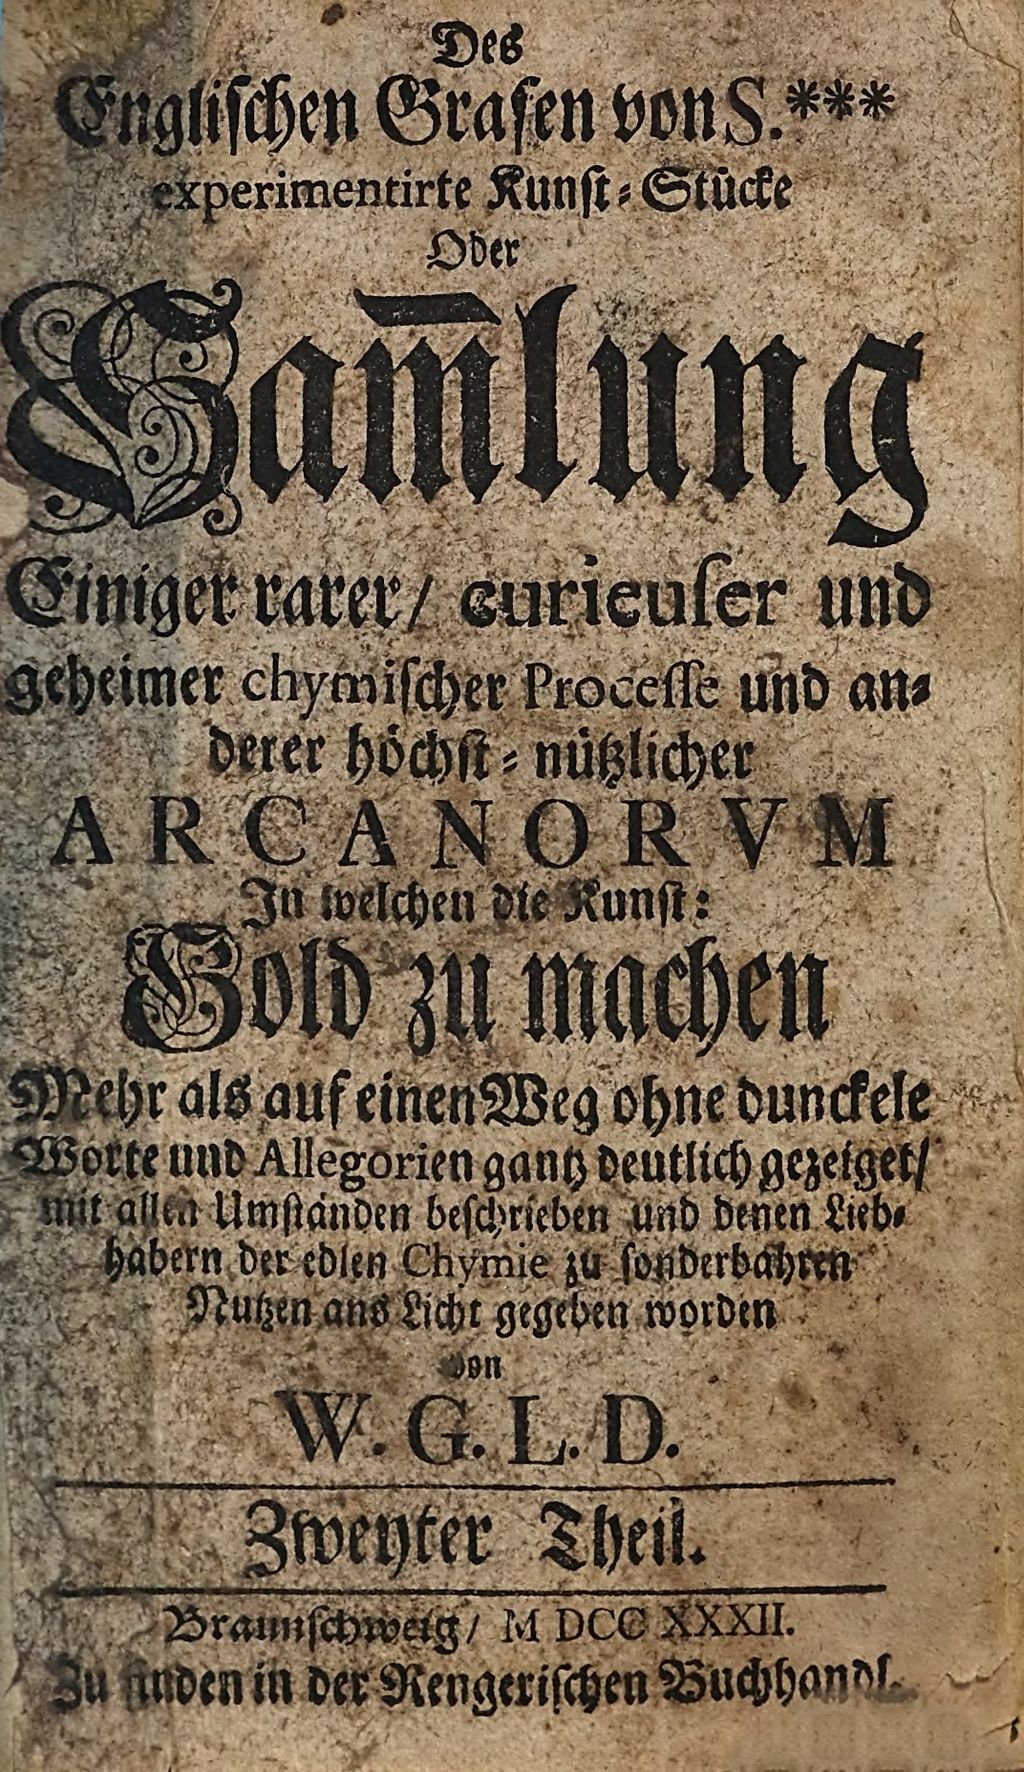 Des
Engliſchen Grafen von S.***
experimentirte Kunſt-Stücke
Oder
Sam̅lung
Einiger rarer/ curieuſer und
geheimer chymiſcher Proceſſe und an-
derer höchſt-nützlicher
ARCANORVM
In welchen die Kunſt:
Gold zu machen
Mehr als auf einen Weg ohne dunckele
Worte und Allegorien gantz deutlich gezeiget/
mit allen Umſtänden beſchrieben und denen Lieb-
habern der edlen Chymie zu ſonderbahren
Nutzen ans Licht gegeben worden
von
W. G. L. D.
Zweyter Theil.
Braunſchweig/ M DCC XXXII.
Zu finden in der Rengeriſchen Buchhandl.